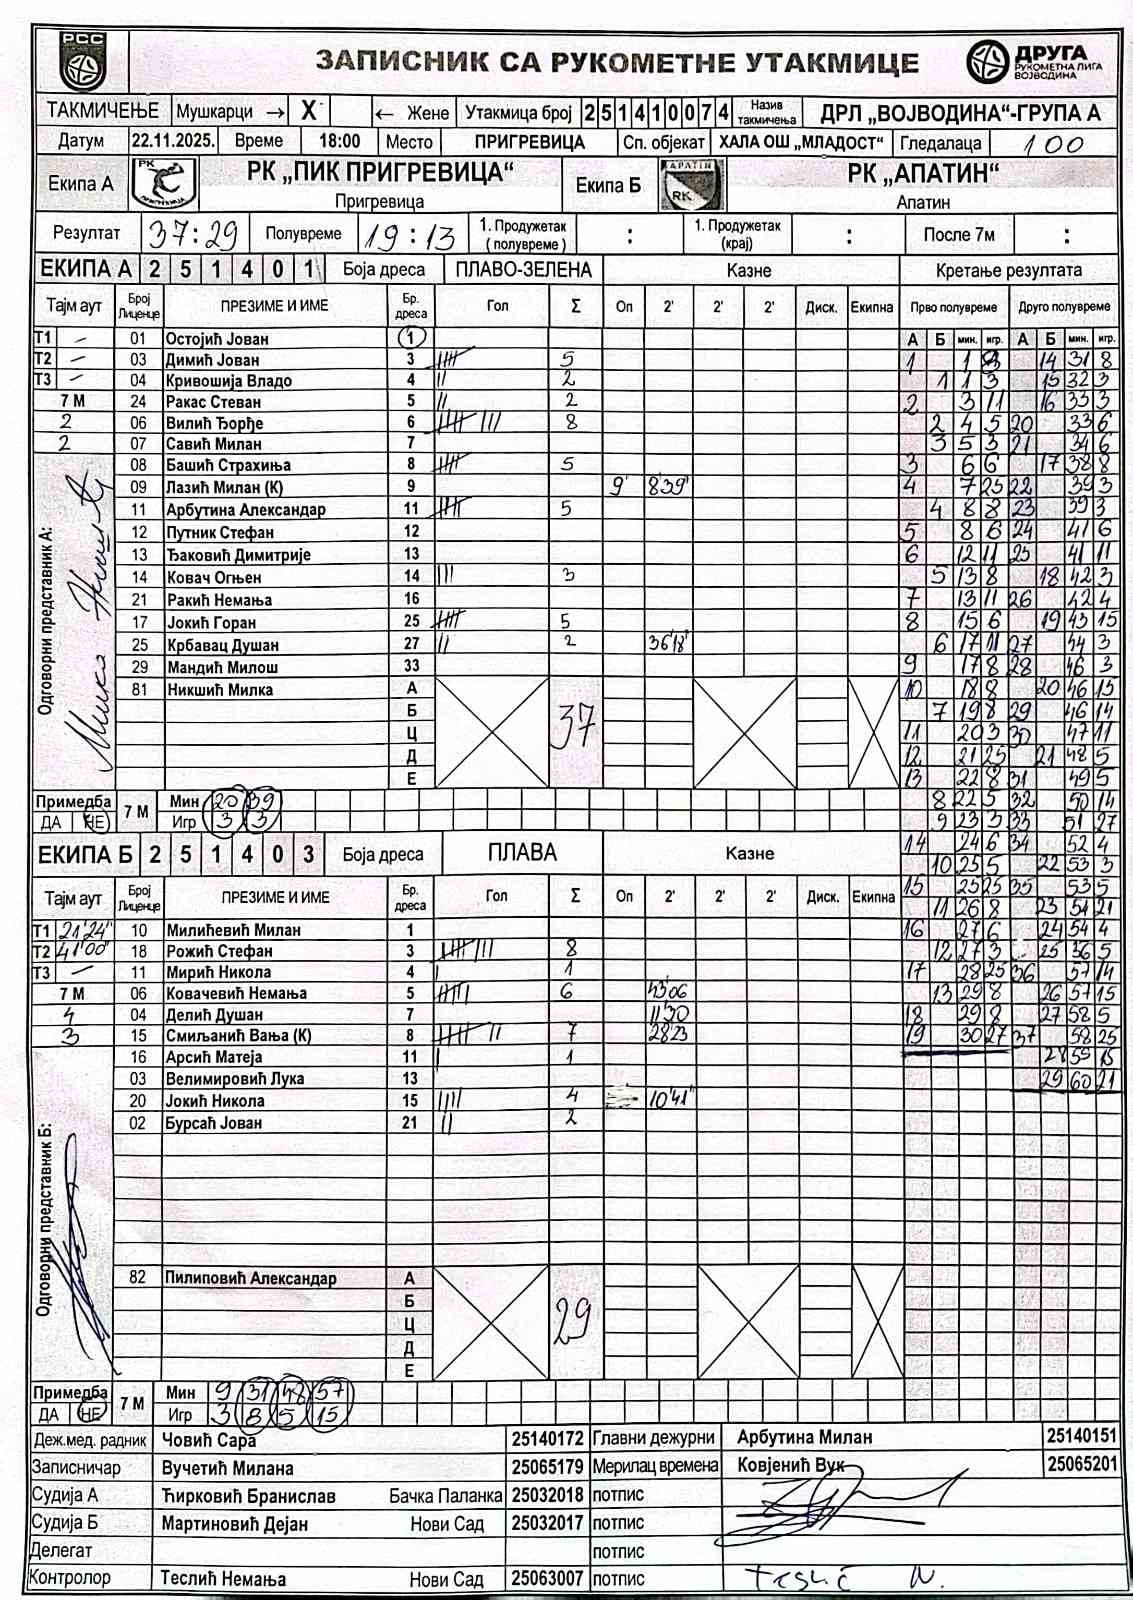 РСС
ЗАПИСНИК СА РУКОМЕТНЕ УТАКМИЦЕ
ДРУГА
РУКОМЕТНА ЛИГА
ВОЈВОДИНА
ТАКМИЧЕЊЕ Мушкарци → X ← Жене Утакмица број 2 5 1 4 1 0 0 7 4 Назив такмичења ДРЛ „ВОЈВОДИНА“-ГРУПА А
Датум 22.11.2025. Време 18:00 Место ПРИГРЕВИЦА Сп. објекат ХАЛА ОШ „МЛАДОСТ“ Гледалаца 100
Екипа А РК „ПИК ПРИГРЕВИЦА“ Пригревица Екипа Б РК „АПАТИН“ Апатин
Резултат 37:29 Полувреме 19:13 1. Продужетак (полувреме) : 1. Продужетак (крај) : После 7м :
ЕКИПА А 2 5 1 4 0 1 Боја дреса ПЛАВО-ЗЕЛЕНА Казне Кретање резултата
Тајм аут Број Лиценце ПРЕЗИМЕ И ИМЕ Бр. дреса Гол Σ Оп 2' 2' 2' Диск. Екипна Прво полувреме Друго полувреме
А Б мин. игр. А Б мин. игр.
Т1 - 01 Остојић Јован 1
Т2 - 03 Димић Јован 3 5
Т3 - 04 Кривошија Владо 4 2
7 М 24 Ракас Стеван 5 2
2 06 Вилић Ђорђе 6 8
2 07 Савић Милан 7
08 Башић Страхиња 8 5
09 Лазић Милан (К) 9 9' 8'39'
11 Арбутина Александар 11 5
12 Путник Стефан 12
13 Ђаковић Димитрије 13
14 Ковач Огњен 14 3
21 Ракић Немања 16
17 Јокић Горан 25 5
25 Крбавац Душан 27 2 36'18'
29 Мандић Милош 33
81 Никшић Милка А
Б
Ц
Д
Е
37
Одговорни представник А:
Примедба ДА НЕ 7 М Мин 20 39
Игр 3 3
1 1
1 1 3
2 3 11
2 4 5
3 5 3
3 6 6
4 7 25
4 8 8
5 8 6
6 12 11
5 13 8
7 13 11
8 15 6
6 17 11
9 17 8
10 18 8
7 19 8
11 20 3
12 21 25
13 22 8
8 22 5
9 23 3
14 24 6
10 25 5
15 25 25
11 26 8
16 27 6
12 27 3
17 28 25
13 29 8
18 29 8
19 30 27
14 31 8
15 32 3
16 33 3
20 33 6
21 34 6
17 38 8
22 39 3
23 39 3
24 41 6
25 41 11
18 42 3
26 42 4
19 43 15
27 44 3
28 46 3
20 46 15
29 46 14
30 47 11
21 48 5
31 49 5
32 50 14
33 51 27
34 52 4
22 53 3
35 53 5
23 54 21
24 54 4
25 56 5
36 57 14
26 57 15
27 58 5
37 58 25
28 59 15
29 60 21
ЕКИПА Б 2 5 1 4 0 3 Боја дреса ПЛАВА Казне
Тајм аут Број Лиценце ПРЕЗИМЕ И ИМЕ Бр. дреса Гол Σ Оп 2' 2' 2' Диск. Екипна
Т1 21'24" 10 Милићевић Милан 1
Т2 41'00" 18 Рожић Стефан 3 8
Т3 - 11 Мирић Никола 4 1
7 М 06 Ковачевић Немања 5 6 43'06
4 04 Делић Душан 7 11'30
3 15 Смиљанић Вања (К) 8 7 28'23
16 Арсић Матеја 11 1
03 Велимировић Лука 13
20 Јокић Никола 15 4 10'41"
02 Бурсаћ Јован 21 2
82 Пилиповић Александар А
Б
Ц
Д
Е
29
Одговорни представник Б:
Примедба ДА НЕ 7 М Мин 9 31 48 57
Игр 3 8 5 15
Деж.мед. радник Човић Сара 25140172 Главни дежурни Арбутина Милан 25140151
Записничар Вучетић Милана 25065179 Мерилац времена Ковјенић Вук 25065201
Судија А Ћирковић Бранислав Бачка Паланка 25032018 потпис
Судија Б Мартиновић Дејан Нови Сад 25032017 потпис
Делегат потпис
Контролор Теслић Немања Нови Сад 25063007 потпис Teslić N.